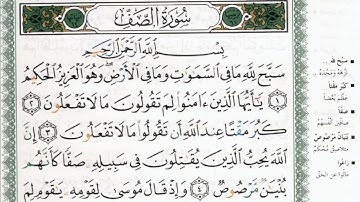 سُورَةُ الصَّفِّ
بِسْمِ اللَّهِ الرَّحْمَٰنِ الرَّحِيمِ
سَبَّحَ لِلَّهِ مَا فِي السَّمَٰوَٰتِ وَمَا فِي الْأَرْضِ وَهُوَ الْعَزِيزُ الْحَكِيمُ
١ يَٰٓأَيُّهَا الَّذِينَ ءَامَنُوا لِمَ تَقُولُونَ مَا لَا تَفْعَلُونَ ٢
كَبُرَ مَقْتًا عِندَ اللَّهِ أَن تَقُولُوا مَا لَا تَفْعَلُونَ ٣ إِنَّ
اللَّهَ يُحِبُّ الَّذِينَ يُقَٰتِلُونَ فِي سَبِيلِهِ صَفًّا كَأَنَّهُم
بُنْيَٰنٌ مَّرْصُوصٌ ٤ وَإِذْ قَالَ مُوسَىٰ لِقَوْمِهِ يَٰقَوْمِ لِمَ
سبّح لله
كبر مقتًا
صفًّا
بنيان مرصوص
زاغوا